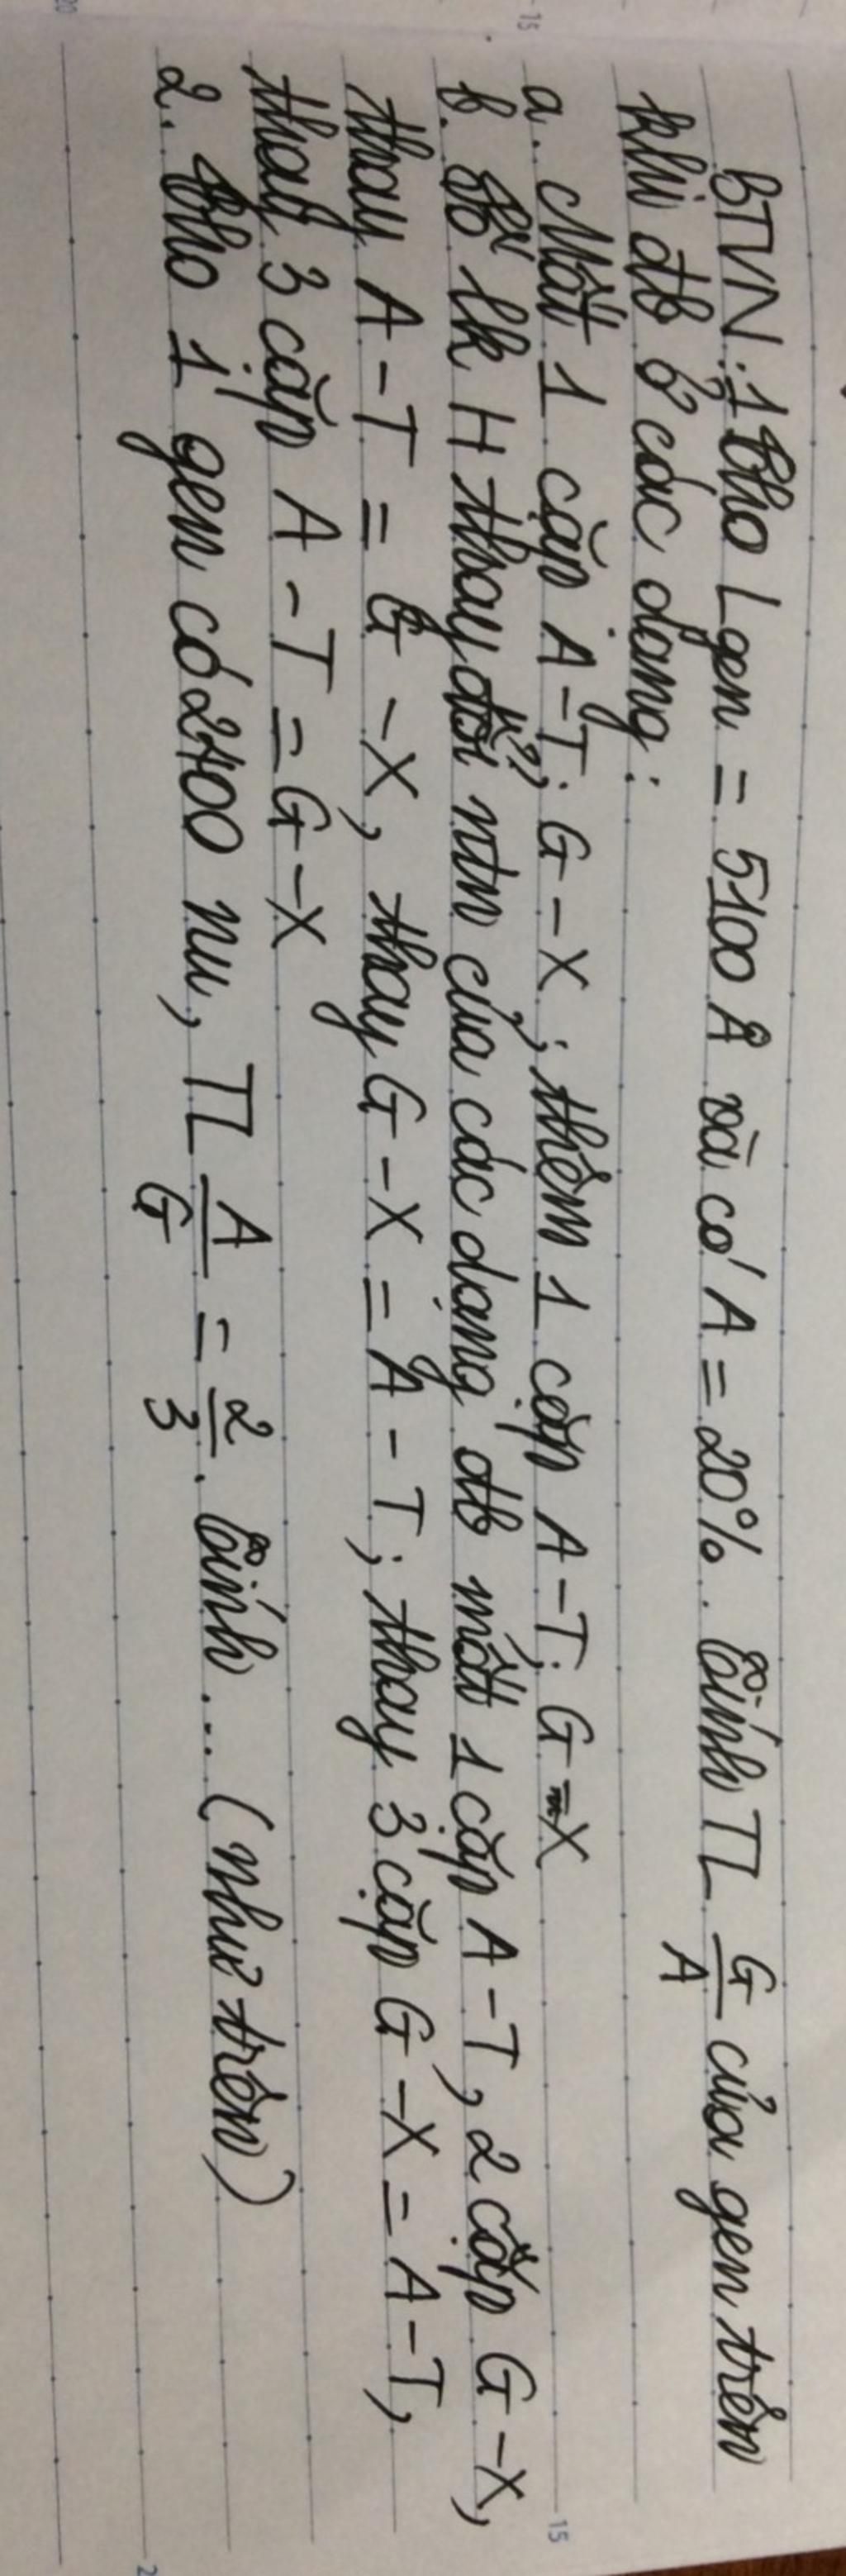 BTVN: 1 Cho Lgen = 5100 Å và có A = 20%. Tính TL G/A của gen trên
khi đb ở các dạng:
a. Mất 1 cặp A-T; G-X; thêm 1 cặp A-T; G-X
b. Số lk H thay đổi ntn của các dạng đb mất 1 cặp A-T, 2 cặp G-X,
thay A-T = G-X, thay G-X = A-T; thay 3 cặp G-X = A-T,
thay 3 cặp A-T = G-X
2. Cho 1 gen có 2400 nu, TL A/G = 2/3. Tính ... (như trên)
15
15
20
2